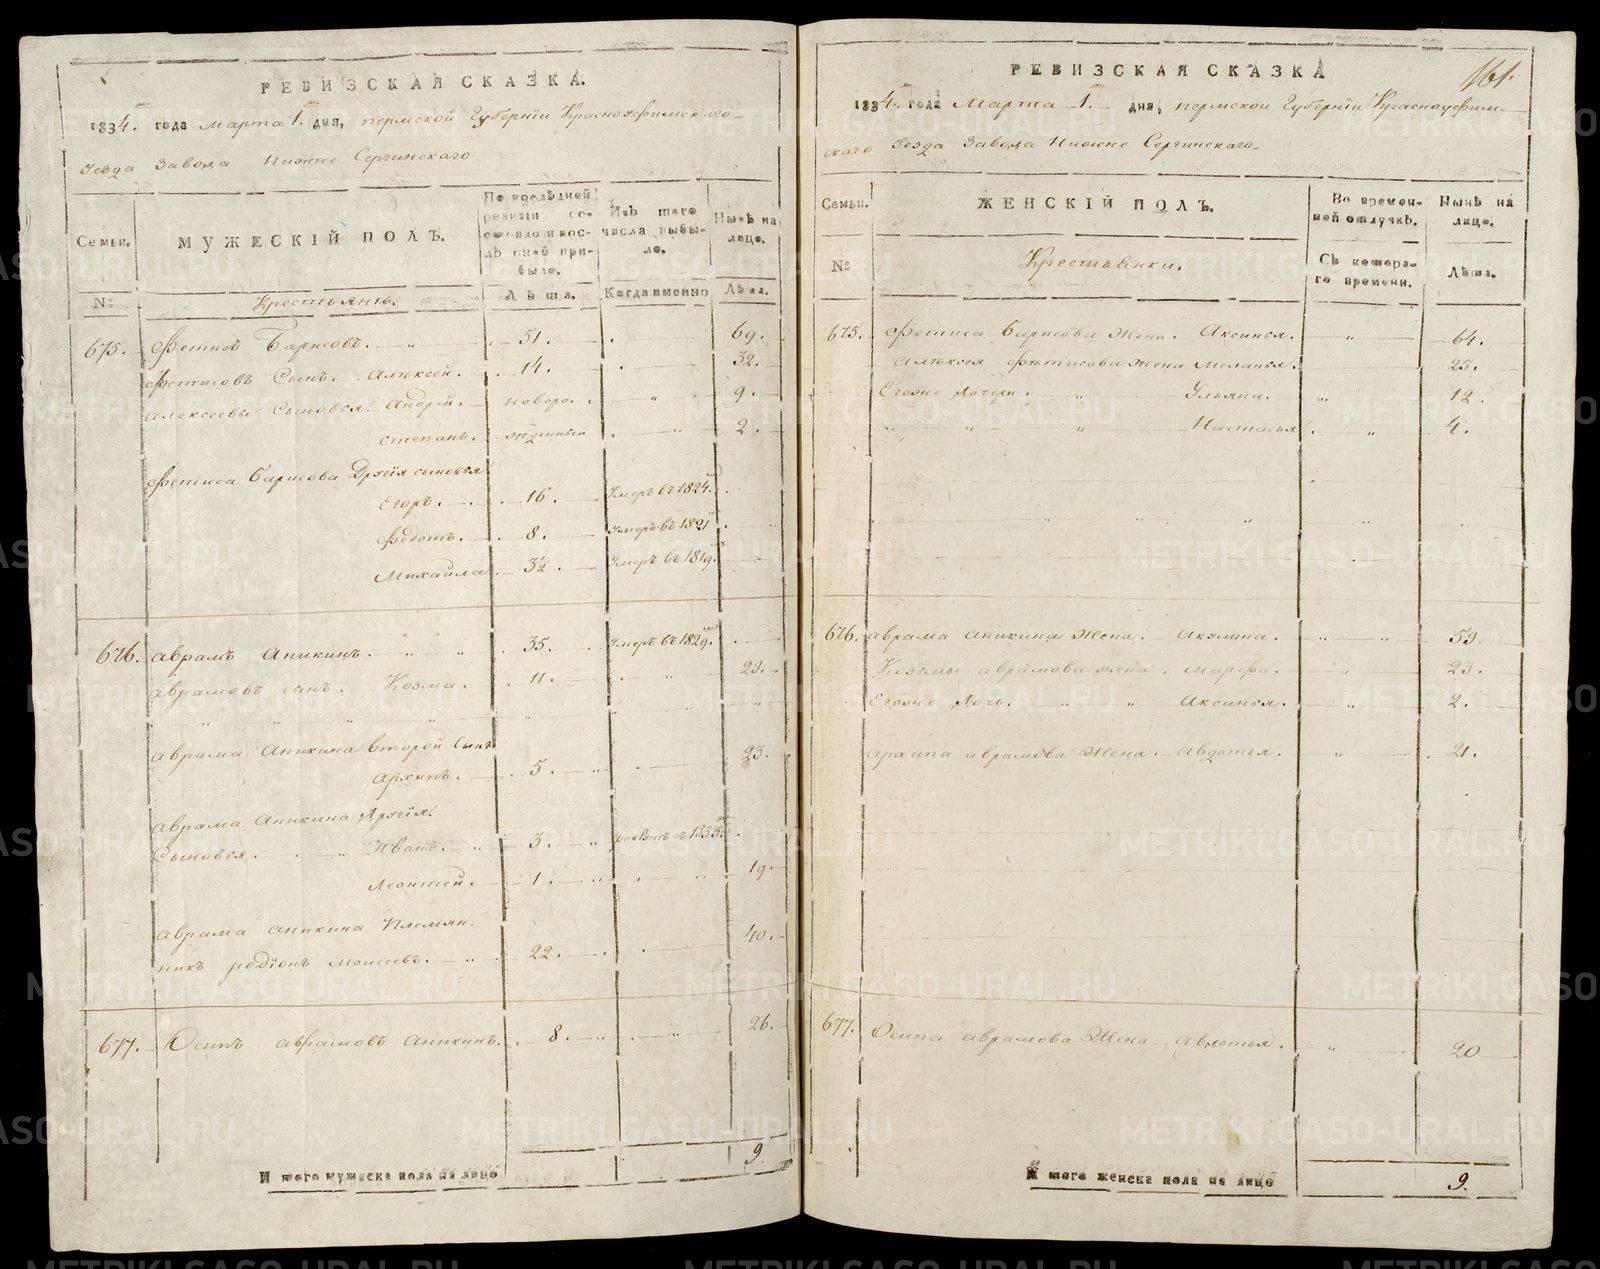 РЕВИЗСКАЯ СКАЗКА.
1834. года Марта 1. дня, пермской Губернїи Красноуфимскаго
Уезда Завода Нижне Сергинскаго
Семьи.
№
МУЖЕСКІЙ ПОЛЪ.
Крестьянъ.
По послѣдней ревизіи состояло и послѣ оной прибыло.
Лѣта.
Изъ того числа выбыло.
Когда именно
Нынѣ на лицо.
Лѣта.
675. Фетисъ Барисовъ. 51. 69.
Фетисовъ Сынъ. Алексей. 14. 32.
Алексеевы Сыновья. Андрей. новоро. 9.
Степанъ. жденныи 2.
Фетиса Барисова Другїя сыновья
Егоръ. 16. Умеръ въ 1824.
Федотъ. 8. Умеръ въ 1821
Михайла 3½. Умеръ въ 1819.
676. Аврамъ Аникинъ. 35. Умеръ въ 1829.
Аврамовъ сынъ. Козма. 11. 29.
Аврама Аникина второй Сынъ
Архипъ. 5. 23.
Аврама Аникина Другїя
Сыновья. Иванъ. 3. 1833.
Леонтей. 1. 19.
Аврама Аникина Племян
никъ родїонъ Моисеевъ. 22. 40.
677. Осипъ Аврамовъ Аникинъ. 8. 26.
Итого мужеска пола на лицо 9.
161.
РЕВИЗСКАЯ СКАЗКА
1834. года Марта 1. дня, пермской Губернїи Красноуфим
скаго Уезда Завода Нижне Сергинскаго
Семьи.
№
ЖЕНСКІЙ ПОЛЪ.
Крестьянки.
Во временной отлучкѣ.
Съ котораго времени.
Нынѣ на лицо.
Лѣта.
675. Фетиса Барисова Жена. Аксинья. 64.
Алексея Фетисова жена Меланья. 25.
Егоже Дочери. Ульяна. 12.
Настасья 4.
676. Аврама Аникина Жена. Акулина. 59.
Козьмы Аврамова жена. Марфа. 23.
Егоже Дочь. Аксинья. 2.
Архипа Аврамова Жена. Авдотья. 21.
677. Осипа Аврамова Жена Авдотья. 20
Итого женска пола на лицо 9.
METRIKI.GASO-URAL.RU